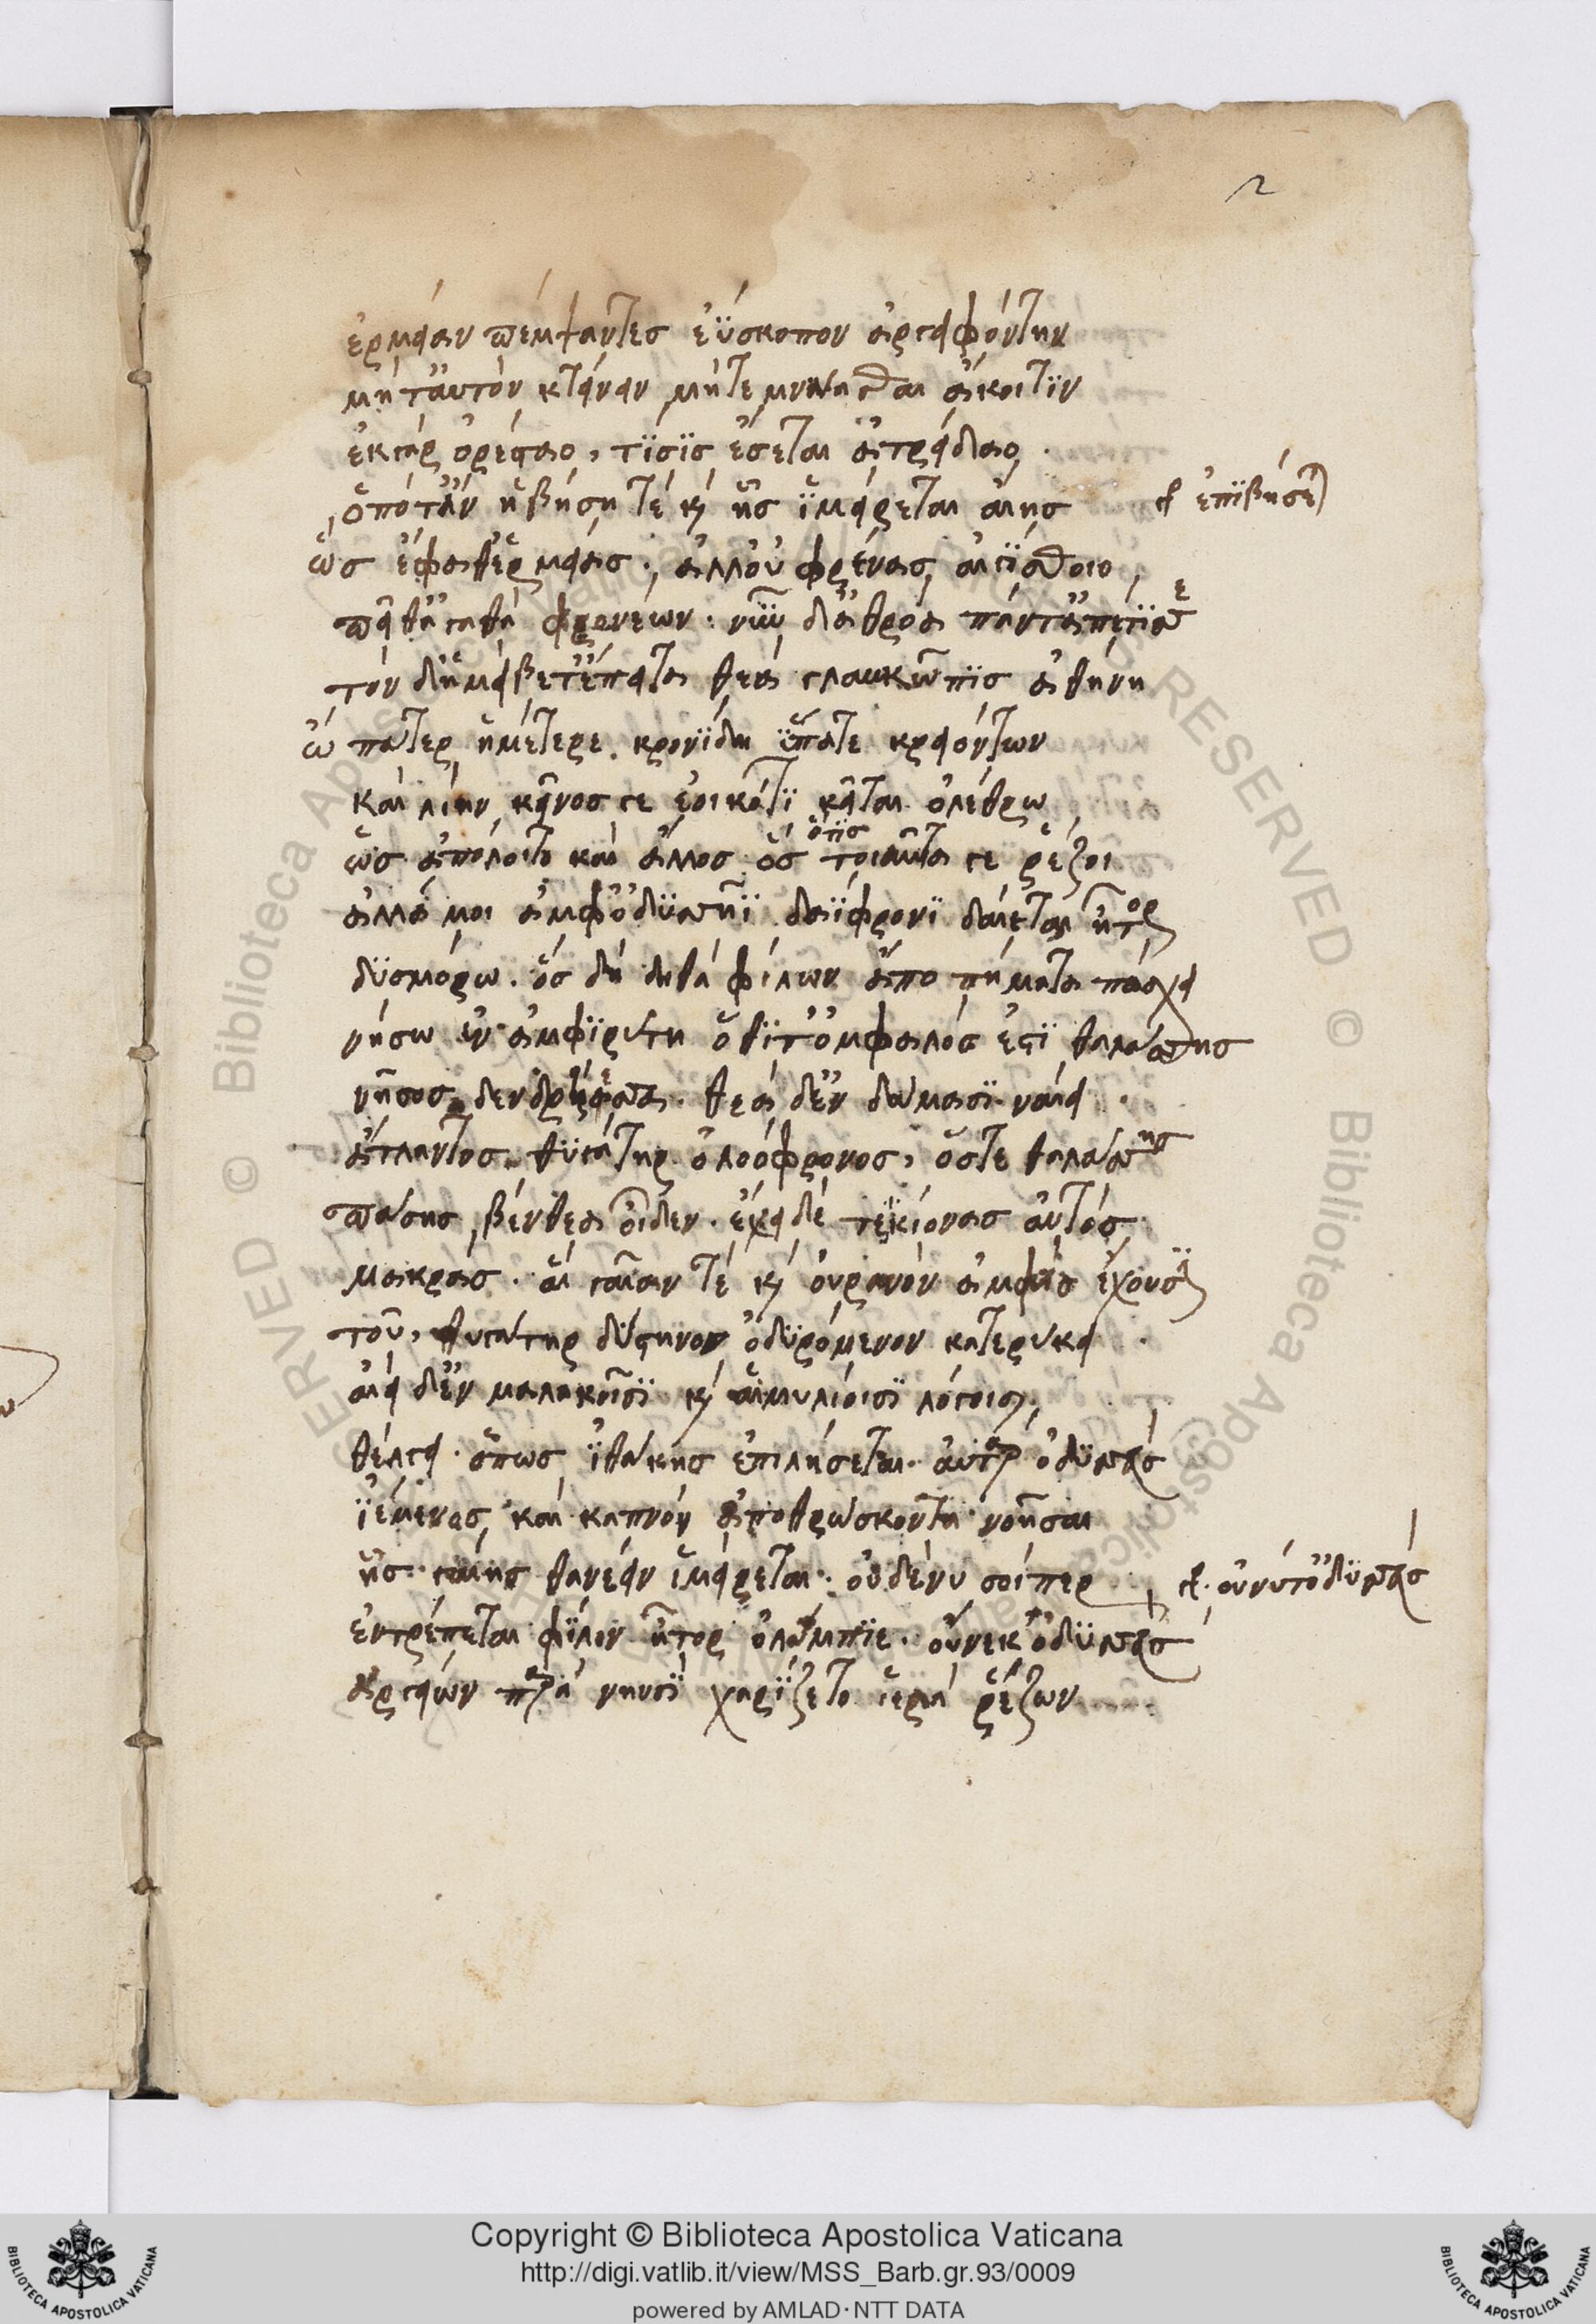 2
ἑρμείαν πέμψαντες ἐΰσκοπον ἀργειφόντην
μήτ' αὐτὸν κτείνειν μήτε μνάασθαι ἄκοιτϊν
ἐκ γὰρ ὀρέσταο, τΐσϊς ἔσεται ἀτρείδαο.
ὁπότ' ἂν ἡβήση τέ κ ἧς ἱμείρεται αἴης
ἐπϊβήσετ
ὣς ἔφαθ' ἑρμείας· ἀλλ' οὐ φρένας αἰγίσθοιο,
πεῖθ' ἀγαθὰ φρονέων. νῦν δ' ἀθρόα πάντ' ἀπέτισε
τὸν δ' ἠμείβετ' ἔπειτα θεὰ γλαυκῶπϊς ἀθήνη
ὦ πάτερ ἡμέτερε κρονΐδη ὕπατε κρειόντων
καὶ λίην κεῖνος γε ἐοικότϊ κεῖται ὀλέθρω
ὅτϊς
ὡς ἀπόλοιτο καὶ ἄλλος ὅς τοιαῦτα γε ῥέζοι
ἀλλά μοι ἀμφ' ὀδϋσῆϊ δαΐφρονϊ δαίεται ἦτορ
δϋσμόρω. ὃς δὴ δηθὰ φίλων ἄπο πήματα πάσχει
νήσω ἐν ἀμφϊρύτη ὅθϊ τ' ὀμφαλός ἐστϊ θαλάσσης
νῆσος δενδρήεσσα. θεὰ δ' ἐν δώμασϊ ναίει.
ἄτλαντος θϋγάτηρ ὀλοόφρονος, ὅστε θαλάσσης
πάσης βένθεα οἶδεν. ἔχει δέ τε κίονας αὐτὸς
μακράς. αἳ γαῖαν τέ κ οὐρανὸν ἀμφὶς ἔχουσϊ
τοῦ, θυγάτηρ δύστηνον ὀδϋρόμενον κατερύκει.
αἰεὶ δ' ἐν μαλακοῖσϊ κ αἱμυλίοισϊ λόγοισϊ,
θέλγει. ὅπως ἰθάκης ἐπιλήσεται. αὐτὰρ ὀδϋσσεὺς
ϊέμενος καὶ καπνὸν ἀποθρώσκοντα νοῆσαι
ἧς γαίης θανέειν ἱμείρεται. οὐδέ νυ σοί περ
οὔ νύ τ' ὀδϋσσεὺς
ἐντρέπεται φΐλον ἦτορ ὀλύμπϊε. οὕνεκ' ὀδϋσσεὺς
ἀργείων παρὰ νηυσῒ χαρΐζετο ἱερὰ ῥέζων
Copyright © Biblioteca Apostolica Vaticana
http://digi.vatlib.it/view/MSS_Barb.gr.93/0009
powered by AMLAD·NTT DATA